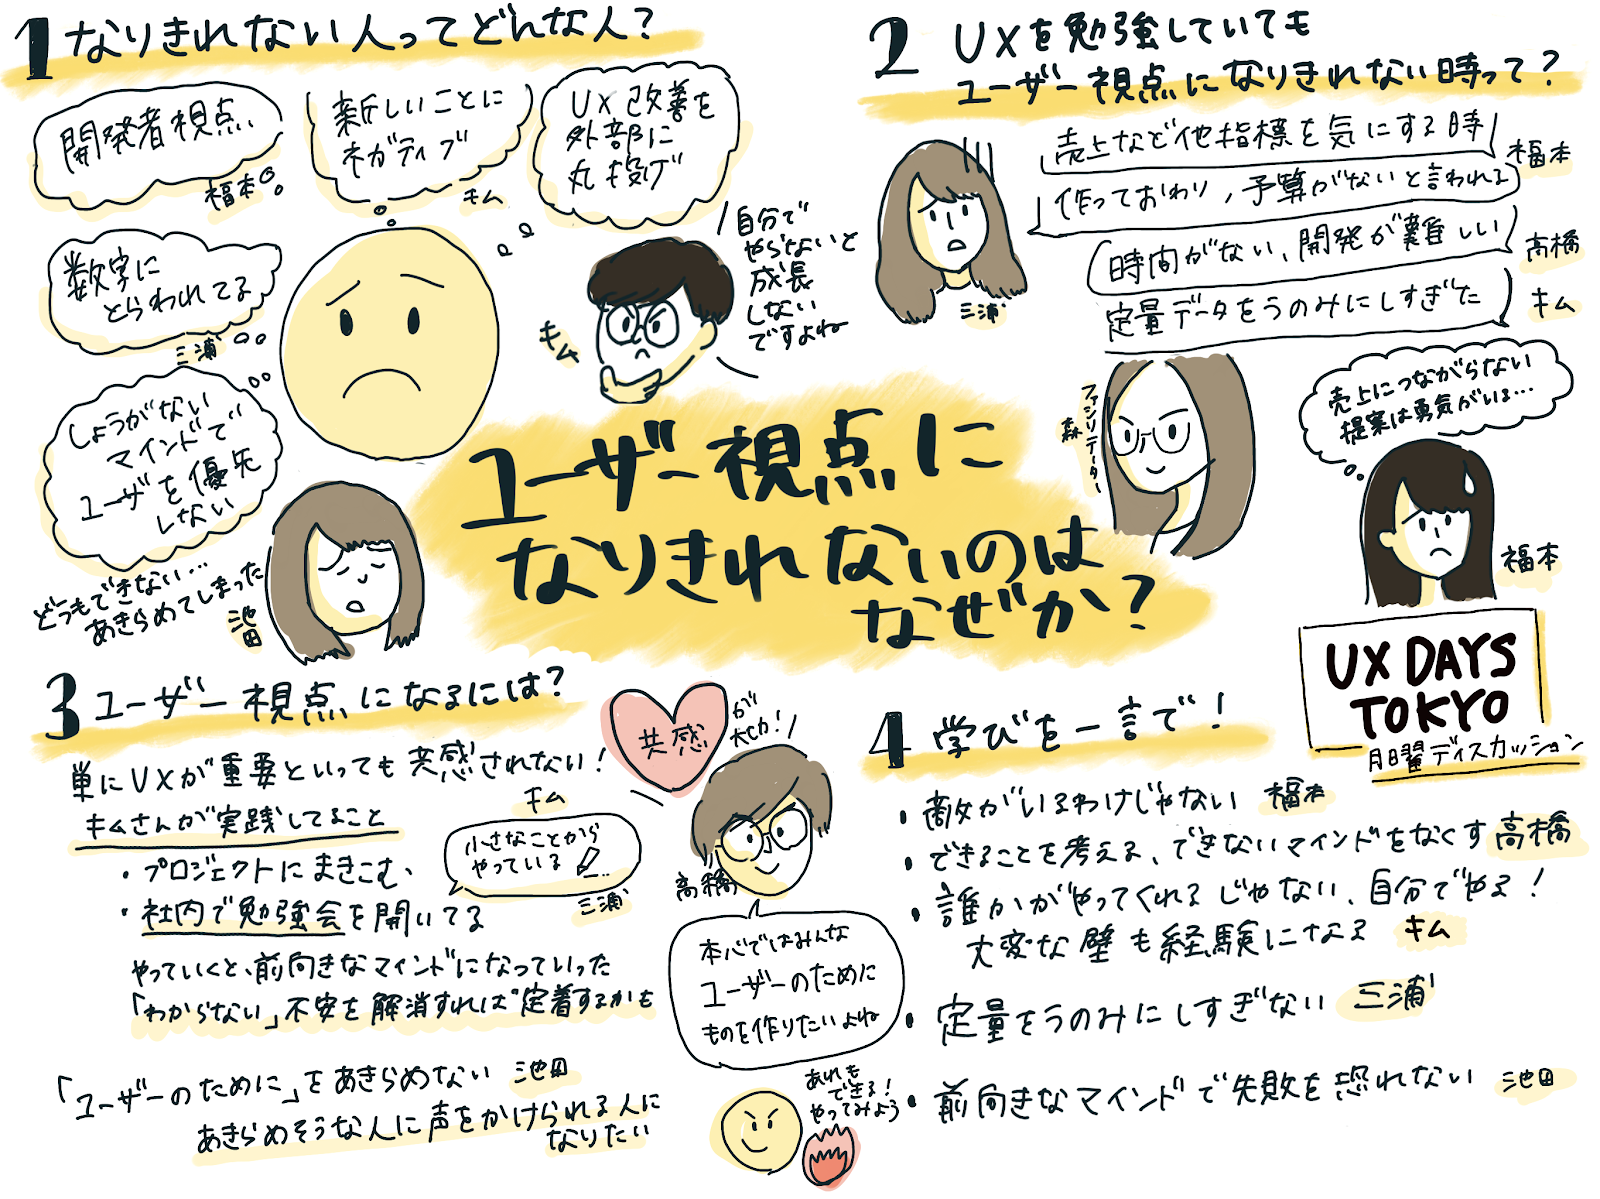 1 なりきれない人ってどんな人?
開発者視点
福本
新しいことに
ネガティブ
キム
UX改善を
外部に
丸投げ
自分で
やらないと
成長
しない
ですよね
キム
数字に
とらわれてる
三浦
しょうがない
マインドで
ユーザを優先
しない
どうもできない...
あきらめてしまった
池田
2 UXを勉強していても
ユーザー視点になりきれない時って?
売上など他指標を気にする時
福本
作っておわり,予算がないと言われる
三浦
時間がない、開発が難しい
高橋
定量データをうのみにしすぎた
キム
ファシリテーター
森
売上につながらない
提案は勇気がいる...
福本
ユーザー視点に
なりきれないのは
なぜか?
UX DAYS
TOKYO
月曜ディスカッション
3 ユーザー視点になるには?
単にUXが重要といっても共感されない!
キム
キムさんが実践してること
・プロジェクトにまきこむ、
・社内で勉強会を開いてる
やっていくと、前向きなマインドになっていった
「わからない」不安を解消すれば定着するかも
小さなことから
やっている
三浦
「ユーザーのために」をあきらめない 池田
あきらめそうな人に声をかけられる人に
なりたい
共感
が
大切!
高橋
本心ではみんな
ユーザーのために
ものを作りたいよね
あれも
できる!
やってみよう
4 学びを一言で!
・敵がいるわけじゃない 福本
・できることを考える、できないマインドをなくす 高橋
・誰かがやってくれるじゃない、自分でやる!
大変な壁も経験になる キム
・定量をうのみにしすぎない 三浦
・前向きなマインドで失敗を恐れない 池田